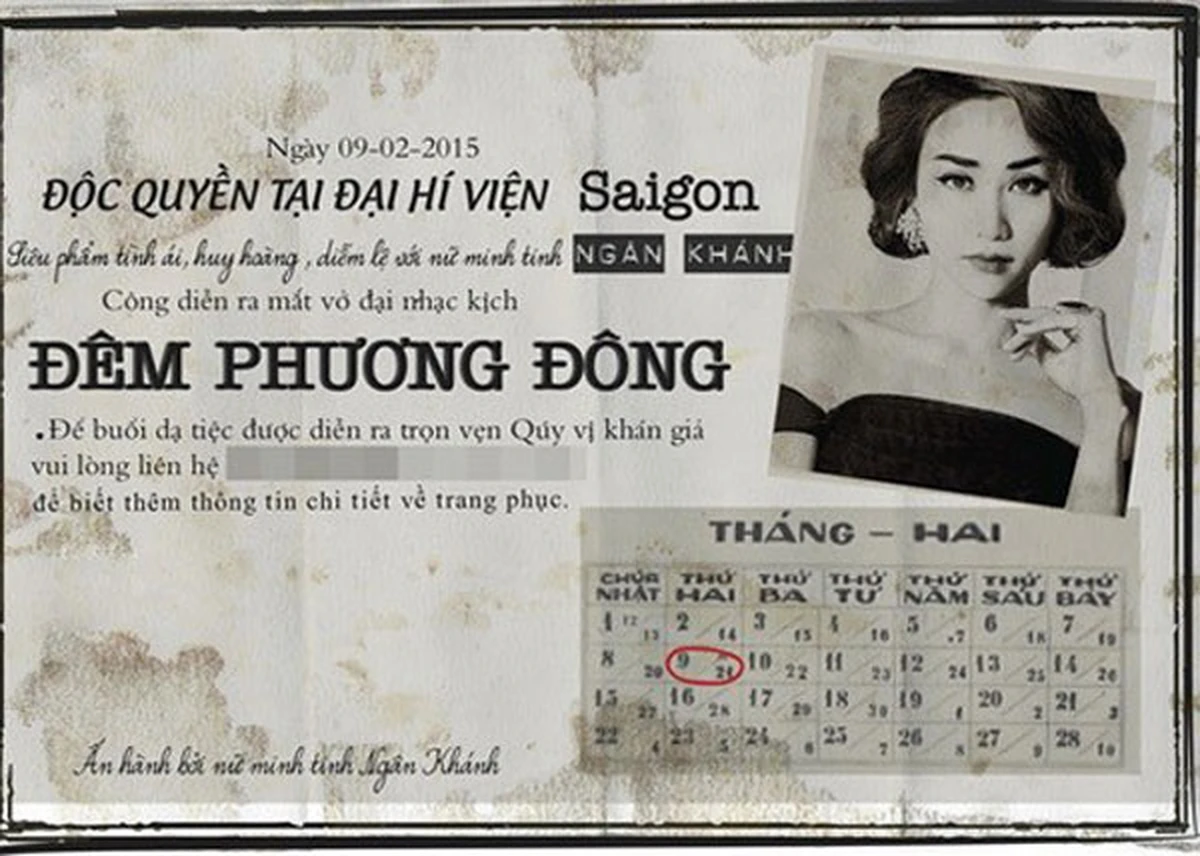 Ngày 09-02-2015
ĐỘC QUYỀN TẠI ĐẠI HÍ VIỆN Saigon
Siêu phẩm tình ái, huy hoàng, diễm lệ với nữ minh tinh NGÂN KHÁNH
Công diễn ra mắt vở đại nhạc kịch
ĐÊM PHƯƠNG ĐÔNG
.Để buổi dạ tiệc được diễn ra trọn vẹn Qúy vị khán giả
vui lòng liên hệ
để biết thêm thông tin chi tiết về trang phục.
THÁNG – HAI
CHÚA NHẬT THỨ HAI THỨ BA THỨ TƯ THỨ NĂM THỨ SÁU THỨ BẢY
1 12 13 2 14 3 15 4 16 5 .7 6 18 7 19
8 20 9 21 10 22 11 23 12 24 13 25 14 26
15 27 16 28 17 29 18 30 19 1 20 2 21 3
22 4 23 5 24 6 25 7 26 8 27 9 28 10
Ấn hành bởi nữ minh tinh Ngân Khánh